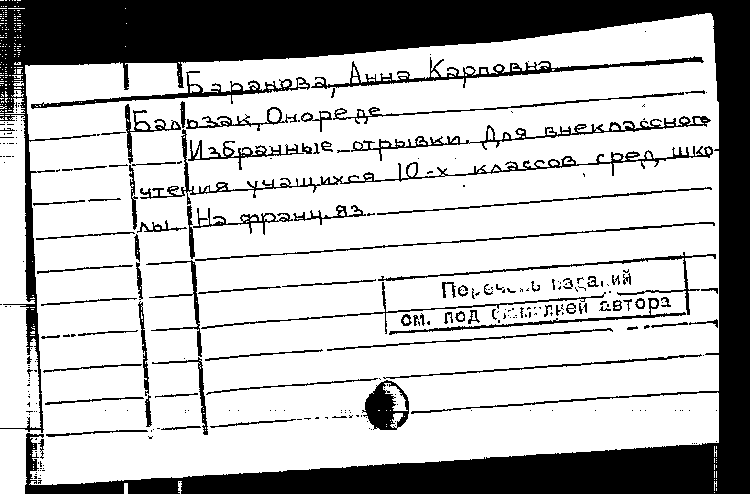 Баранова, Анна Карповна
Бальзак, Оноре де
Избранные отрывки. Для внеклассного
чтения учащихся 10-х классов сред. шко-
лы. На франц. яз.
Перечень изданий
см. под фамилией автора